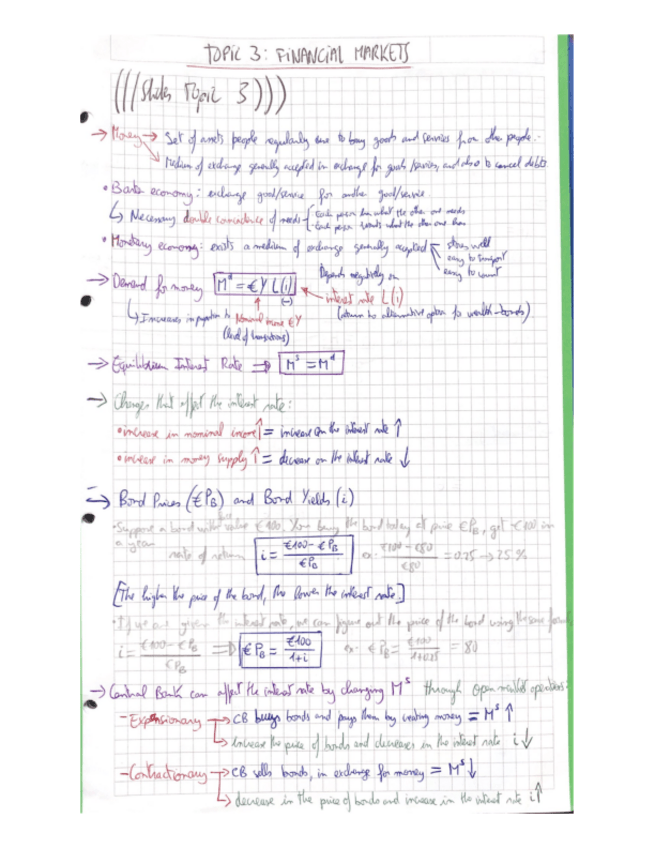 TOPIC 3: FINANCIAL MARKETS
(((Slides Topic 3)))
→ Money → Set of assets people regularly use to buy goods and services from other people.
Medium of exchange generally accepted in exchange for goods/services, and also to cancel debts.
• Barter economy: exchange good/service for another good/service
↳ Necessary double coincidence of needs { Each person has what the other one needs
Each person wants what the other one has
• Monetary economy: exists a medium of exchange generally accepted
easy to transport
easy to count
→ Demand for money M^d = €Y L(i) Depends negatively on
(-) interest rate L(i)
↳ Increases in proportion to Nominal income €Y (return to alternative option for wealth-bonds).
(level of transactions)
→ Equilibrium Interest Rate ⇒ M^s = M^d
→ Changes that affect the interest rate:
• increase in nominal income ↑ = increase on the interest rate ↑
• increase in money supply ↑ = decrease on the interest rate ↓
→ Bond Prices (€P_B) and Bond Yields (i)
• Suppose a bond with value €100. You buy the bond today at price €P_B, get €100 in
a year
rate of return i = €100 - €P_B / €P_B ex: €100 - €80 / €80 = 0.25 → 25%
[The higher the price of the bond, the lower the interest rate]
• If we are given the interest rate, we can figure out the price of the bond using the same
i = €100 - €P_B / €P_B ⇒ €P_B = €100 / 1+i ex: €P_B = €100 / 1+0.25 = 80
→ Central Bank can affect the interest rate by changing M^s through open market operations:
- Expansionary → CB buys bonds and pays them by creating money = M^s ↑
↳ increase the price of bonds and decreases in the interest rate i ↓
- Contractionary → CB sells bonds, in exchange for money = M^s ↓
↳ decrease in the price of bonds and increase in the interest rate i ↑